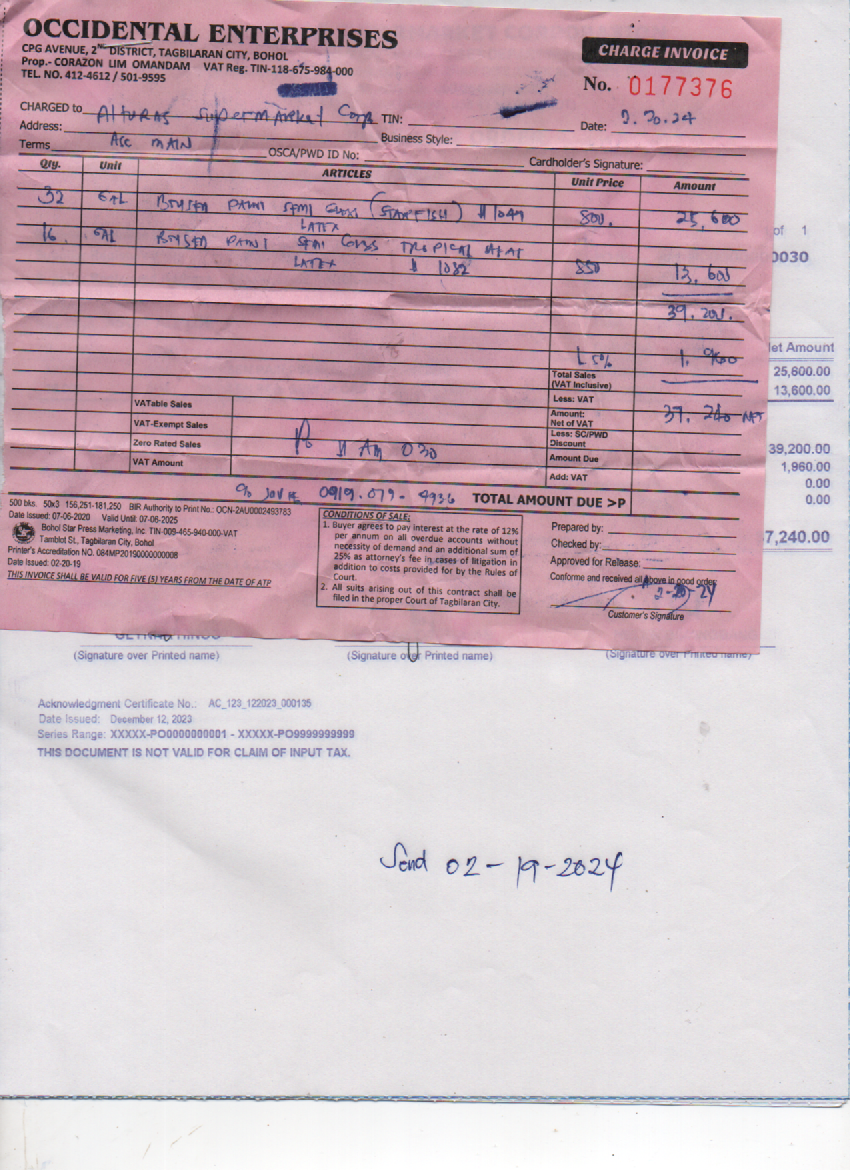 OCCIDENTAL ENTERPRISES
CPG AVENUE, 2ND DISTRICT, TAGBILARAN CITY, BOHOL
Prop.- CORAZON LIM OMANDAM VAT Reg. TIN-118-675-984-000
TEL. NO. 412-4612 / 501-9595
CHARGE INVOICE
No. 0177376
CHARGED to Alturas Supermarket Corp TIN:
Address: Business Style: Date: 2.20.24
Terms ASC MAIN OSCA/PWD ID No: Cardholder's Signature:
Qty. Unit ARTICLES Unit Price Amount
32 GAL PAINT SEMI GLOSS (STARFISH) # 1047 800. 25,600
LATEX
16 GAL PAINT SEMI GLOSS TROPICAL 850 13,600
LATEX # 1032
39,200.
L 5% 1,960
Total Sales
(VAT Inclusive)
Less: VAT
Amount: 37,240
Net of VAT
Less: SC/PWD
Discount
Amount Due
Add: VAT
VATable Sales
VAT-Exempt Sales
Zero Rated Sales
VAT Amount
030
0919-079-4936 TOTAL AMOUNT DUE >P
500 bks. 50x3 156,251-181,250 BIR Authority to Print No.: OCN-2AU0002493783
Date Issued: 07-06-2020 Valid Until: 07-06-2025
Bohol Star Press Marketing, Inc. TIN-009-465-940-000-VAT
Tamblot St., Tagbilaran City, Bohol
Printer's Accreditation NO. 084MP20190000000008
Date Issued: 02-20-19
THIS INVOICE SHALL BE VALID FOR FIVE (5) YEARS FROM THE DATE OF ATP
CONDITIONS OF SALE:
1. Buyer agrees to pay interest at the rate of 12%
per annum on all overdue accounts without
necessity of demand and an additional sum of
25% as attorney's fee in cases of litigation in
addition to costs provided for by the Rules of
Court.
2. All suits arising out of this contract shall be
filed in the proper Court of Tagbilaran City.
Prepared by:
Checked by:
Approved for Release:
Conforme and received all above in good order
2-20-24
Customer's Signature
of 1
0030
et Amount
25,600.00
13,600.00
39,200.00
1,960.00
0.00
0.00
7,240.00
(Signature over Printed name) (Signature over Printed name) (Signature over Printed name)
Acknowledgment Certificate No.: AC_123_122023_000135
Date Issued: December 12, 2023
Series Range: XXXXX-PO0000000001 - XXXXX-PO9999999999
THIS DOCUMENT IS NOT VALID FOR CLAIM OF INPUT TAX.
Send 02-19-2024